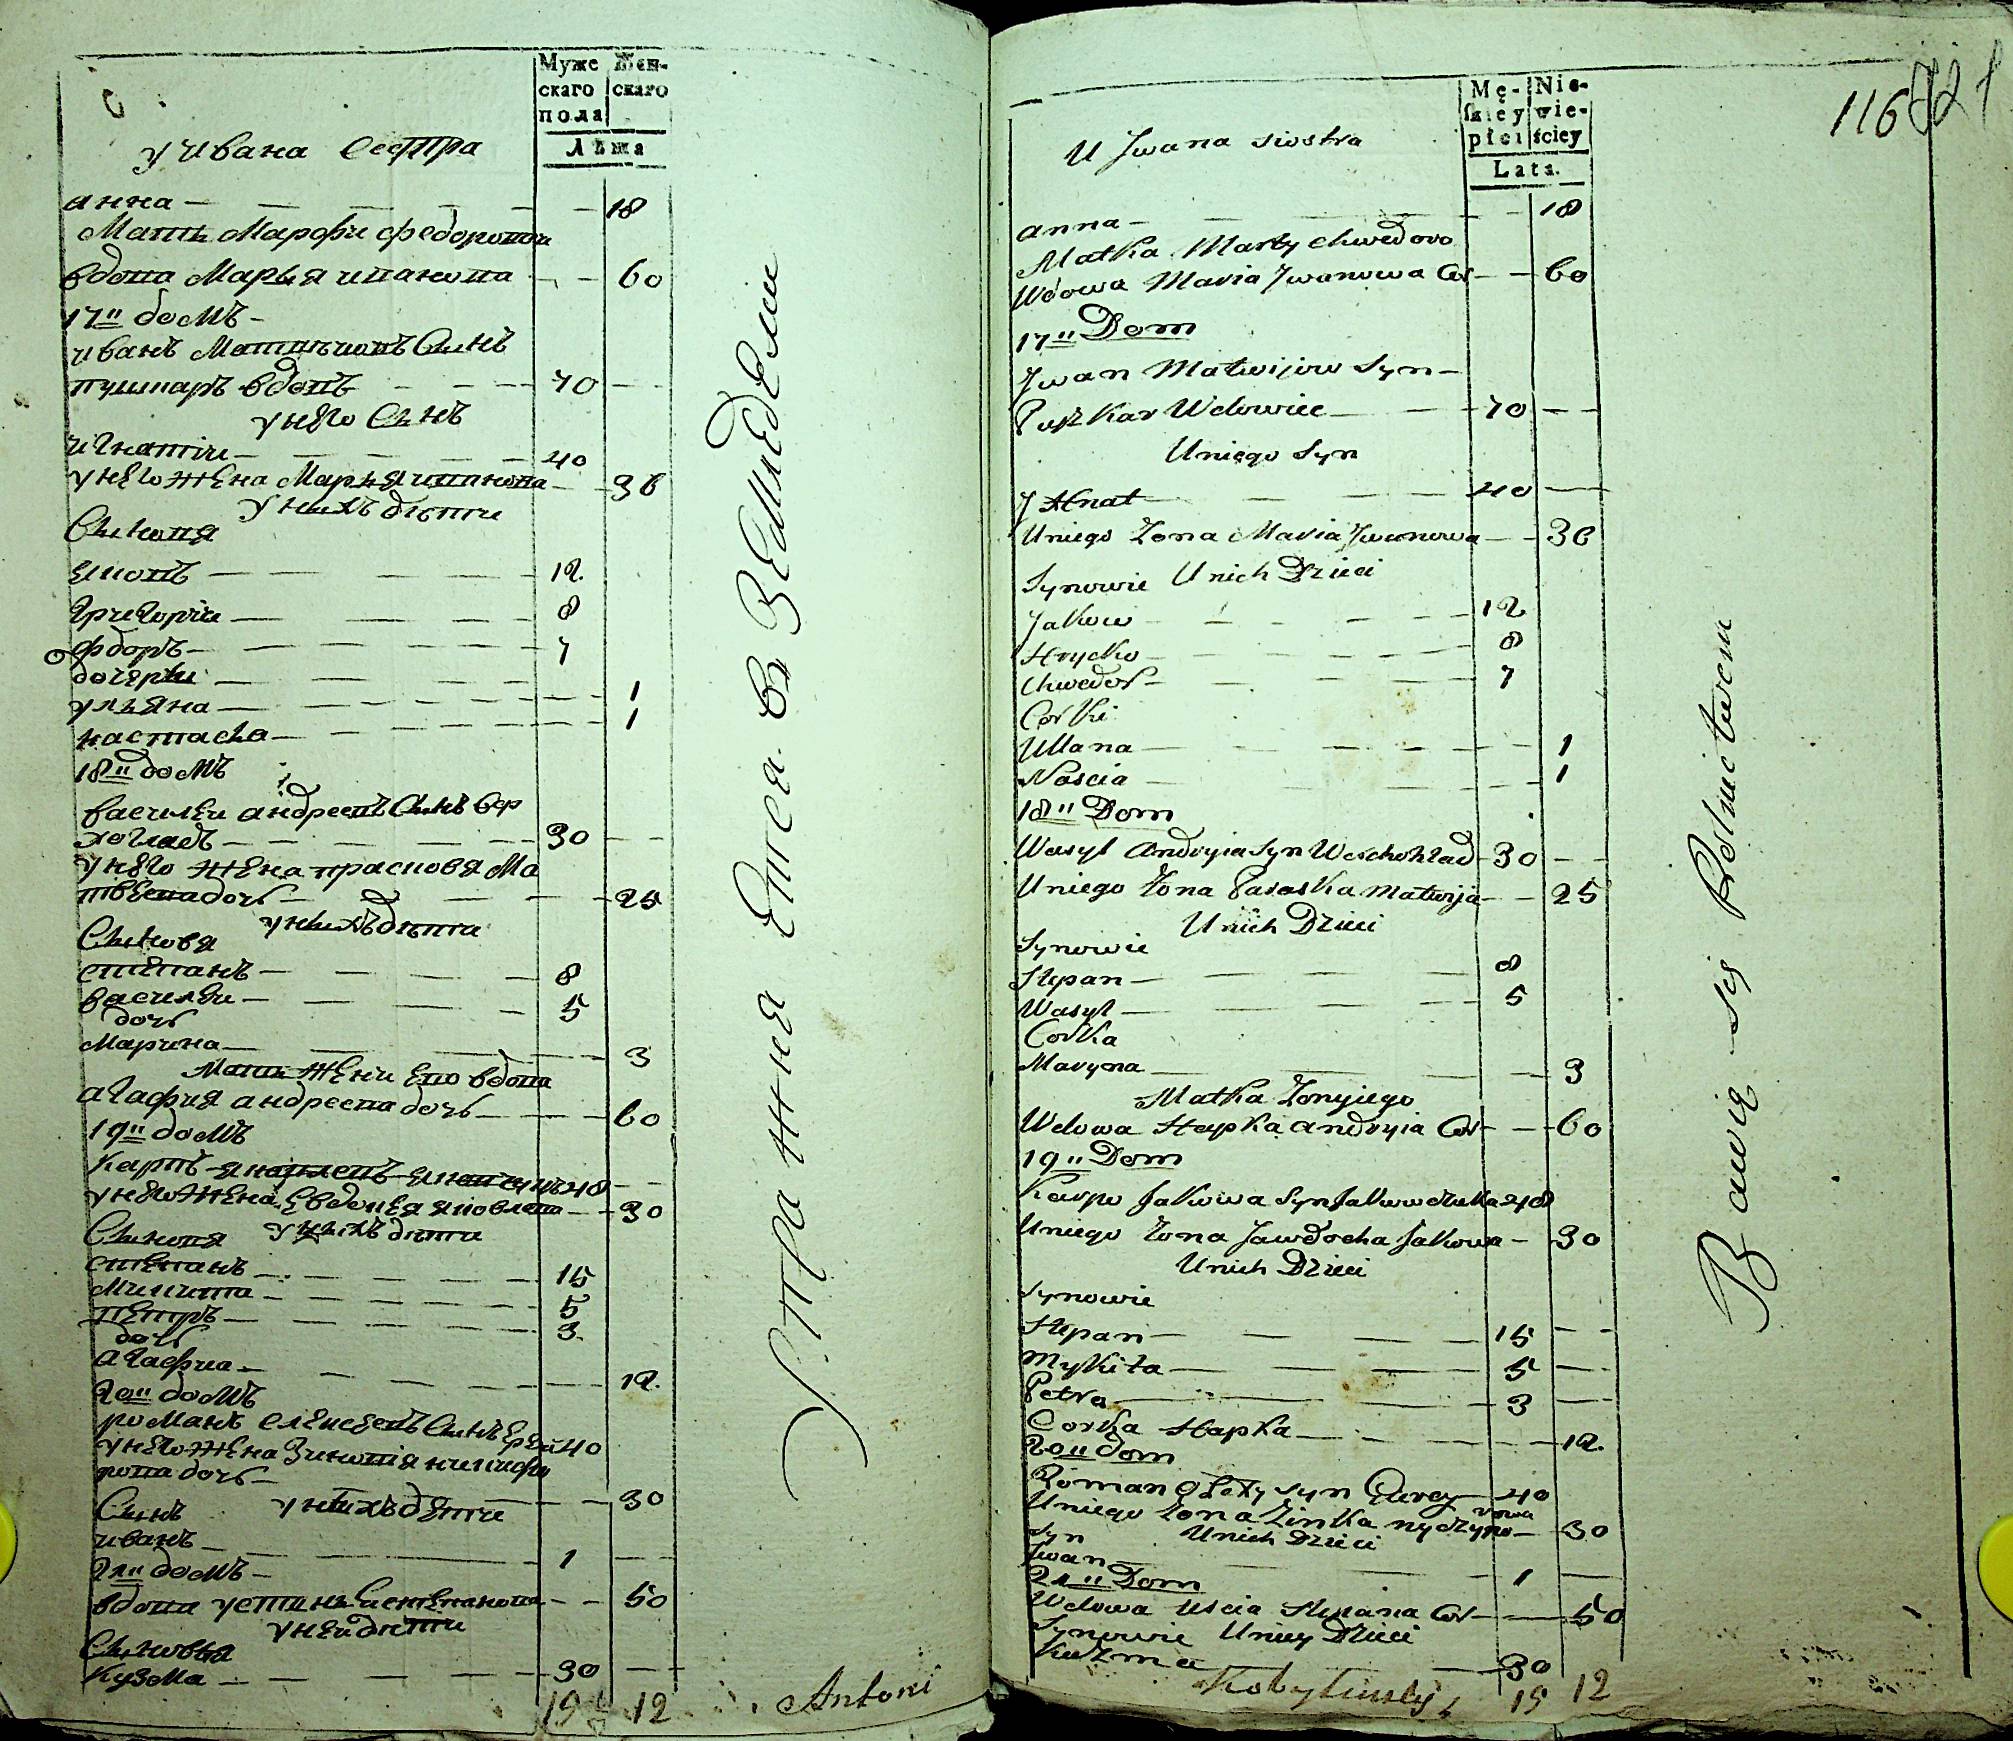 Муже
скаго
пола
Жен-
скаго
Лѣта
у ивана сестра
анна — 18
Мать Марфи федоровои
вдова Марья иванова — 60
17" домъ —
иванъ Матвѣивъ Сынъ
пушкаръ вдовъ — 70
у него Сынъ
игнатіи — 40
у него жена Марья иванова — 36
у нихъ дѣти
Сыновя
яковъ — 12
григоріи — 8
фдоръ — 7
дочерѣи —
ульяна — 1
настася — 1
18" домъ
василеи андреевъ Сынъ вер
хогладъ — 30
у него жена прасковя Ма
твеева дочь — 25
у нихъ дѣти
Сыновя
степанъ — 8
василеи — 5
дочь
Марина — 3
Мать жени его вдова
агафия андреева дочь — 60
19" домъ
Карпъ яковлевъ
у него жена Евдокея яковлева — 30
Сыновя у нихъ дѣти
степанъ — 15
Микита — 5
петръ — 3
дочь
агафиа — 12
20" домъ
романъ елисеевъ Сынъ 40
у него жена Зиновія никифо
рова дочь — 30
Сынъ у нихъ дѣти
иванъ — 1
21" домъ —
вдова устинья степанова — 50
у неи дѣти
Сыновья
кузма — 30
19 12
Упражняется в Земледелии
Antoni
116
Mę-
skiey
płci
Nie-
wie-
ściey
Lata.
U Jwana siostra
Anna — 18
Matka Marty chwedoro
Wdowa Maria Jwanowa Cor — 60
17" Dom
Jwan Matwijow Syn —
Puszkar Wdowiec — 70
Uniego Syn
JHnat — 40
Uniego Żona Maria Jwanowa — 36
Synowie Unich Dzieci
Jakow — 12
Hrycko — 8
Chwedor — 7
Corki
Ullana — 1
Nascia — 1
18" Dom
Wasyl Andryia Syn Werchohlad — 30
Uniego Żona Paraska Matwija — 25
Unich Dzieci
Synowie
Stepan — 8
Wasyl — 5
Corka
Maryna — 3
Matka Żonyiego
Wdowa Hapka Andryia Cor — 60
19" Dom
Karpo Jakowa Syn 48
Uniego Żona Jawdocha Jakowa — 30
Unich Dzieci
Synowie
Stepan — 15
Mykita — 5
Petro — 3
Corka Hapka — 12
20" Dom
Roman Syn — 40
Uniego Żona Zinka — 30
Syn Unich Dzieci
Jwan — 1
21" Dom
Wdowa Uscia Stepana Cor — 50
Synowie Uniey Dzieci
Kuzma — 30
Kobylinsky 19 12
Bawią się Rolnictwem